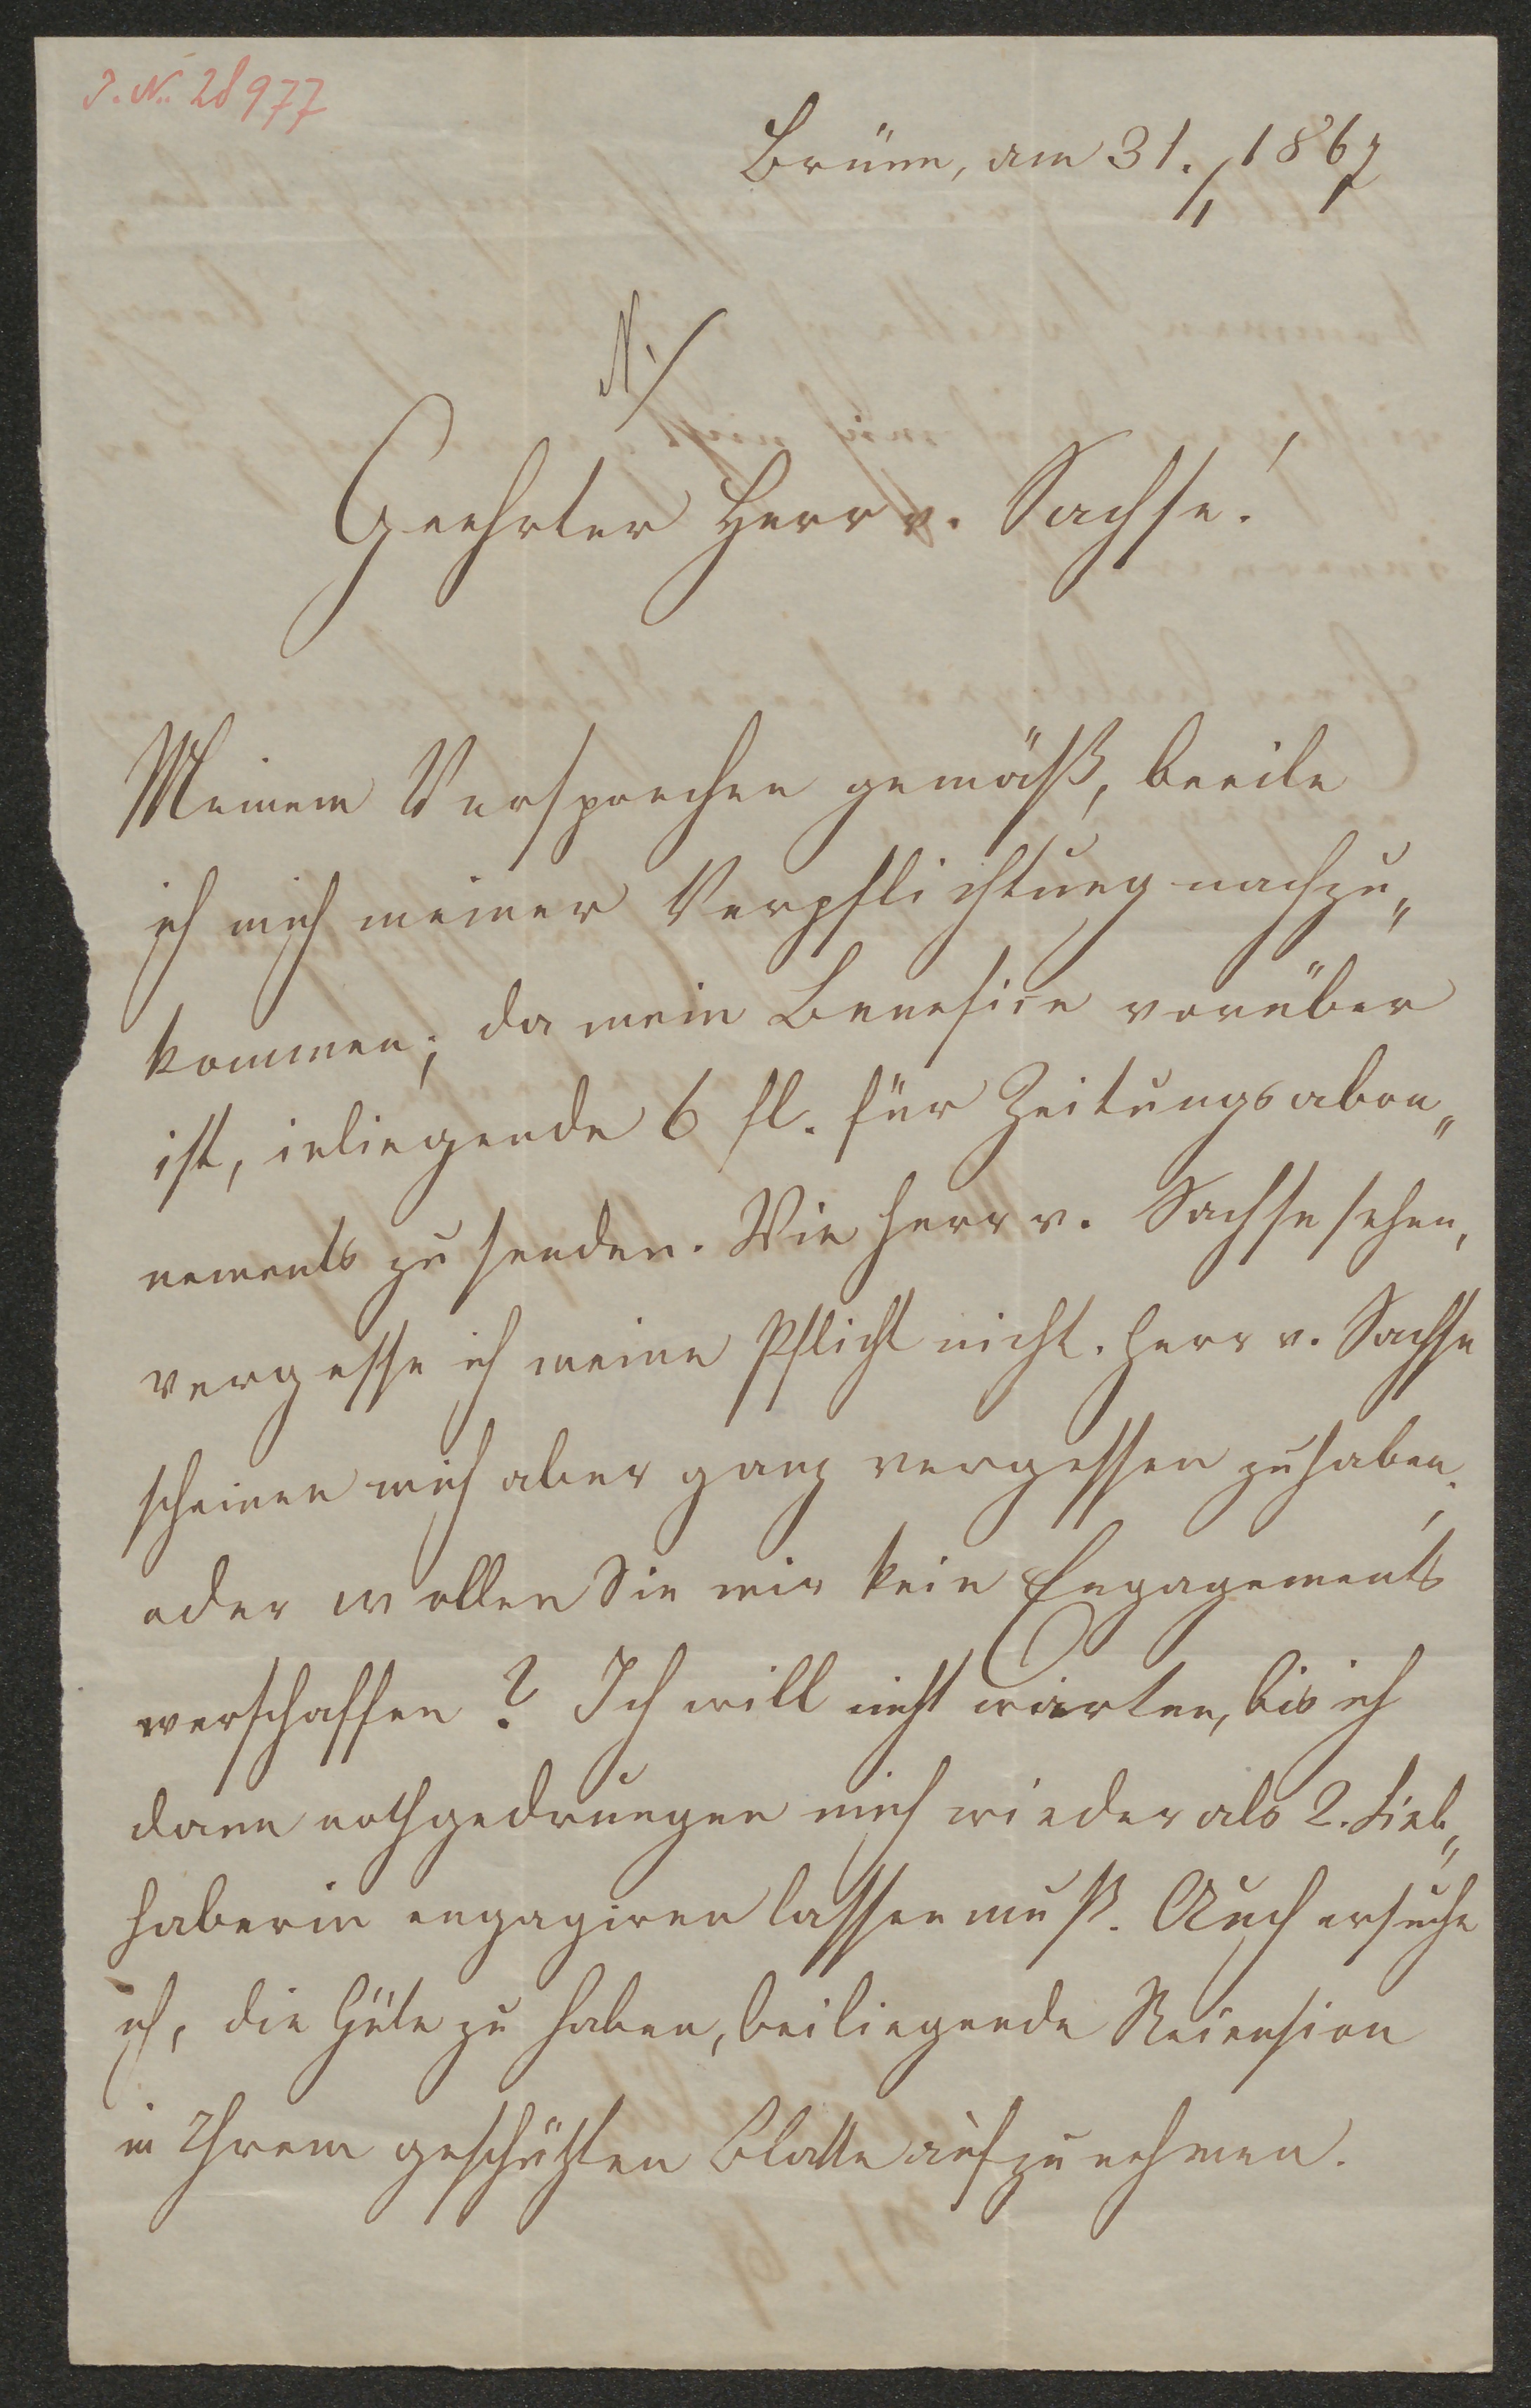 J. N. 28977
Brünn, am 31./1 1867
N./
Geehrter Herr v. Sachse!
Meinem Versprechen gemäß, beeile
ich mich meiner Verpflichtung nachzu„
kommen; da mein Benefice vorüber
ist, inliegende 6 fl. für Zeitungsabon„
nements zu senden. Wie Herr v. Sachse sehen,
vergesse ich meine Pflicht nicht. Herr v. Sachse
scheinen mich aber ganz vergessen zu haben;
oder wollen Sie mir kein Engagements
verschaffen? Ich will nicht warten, bis ich
dann nothgedrungen mich wieder als 2. Lieb„
haberin engagiren lassen muß. Auch ersuche
ich, die Güte zu haben, beiliegende Recension
in Ihrem geschätzten Blatte aufzunehmen.